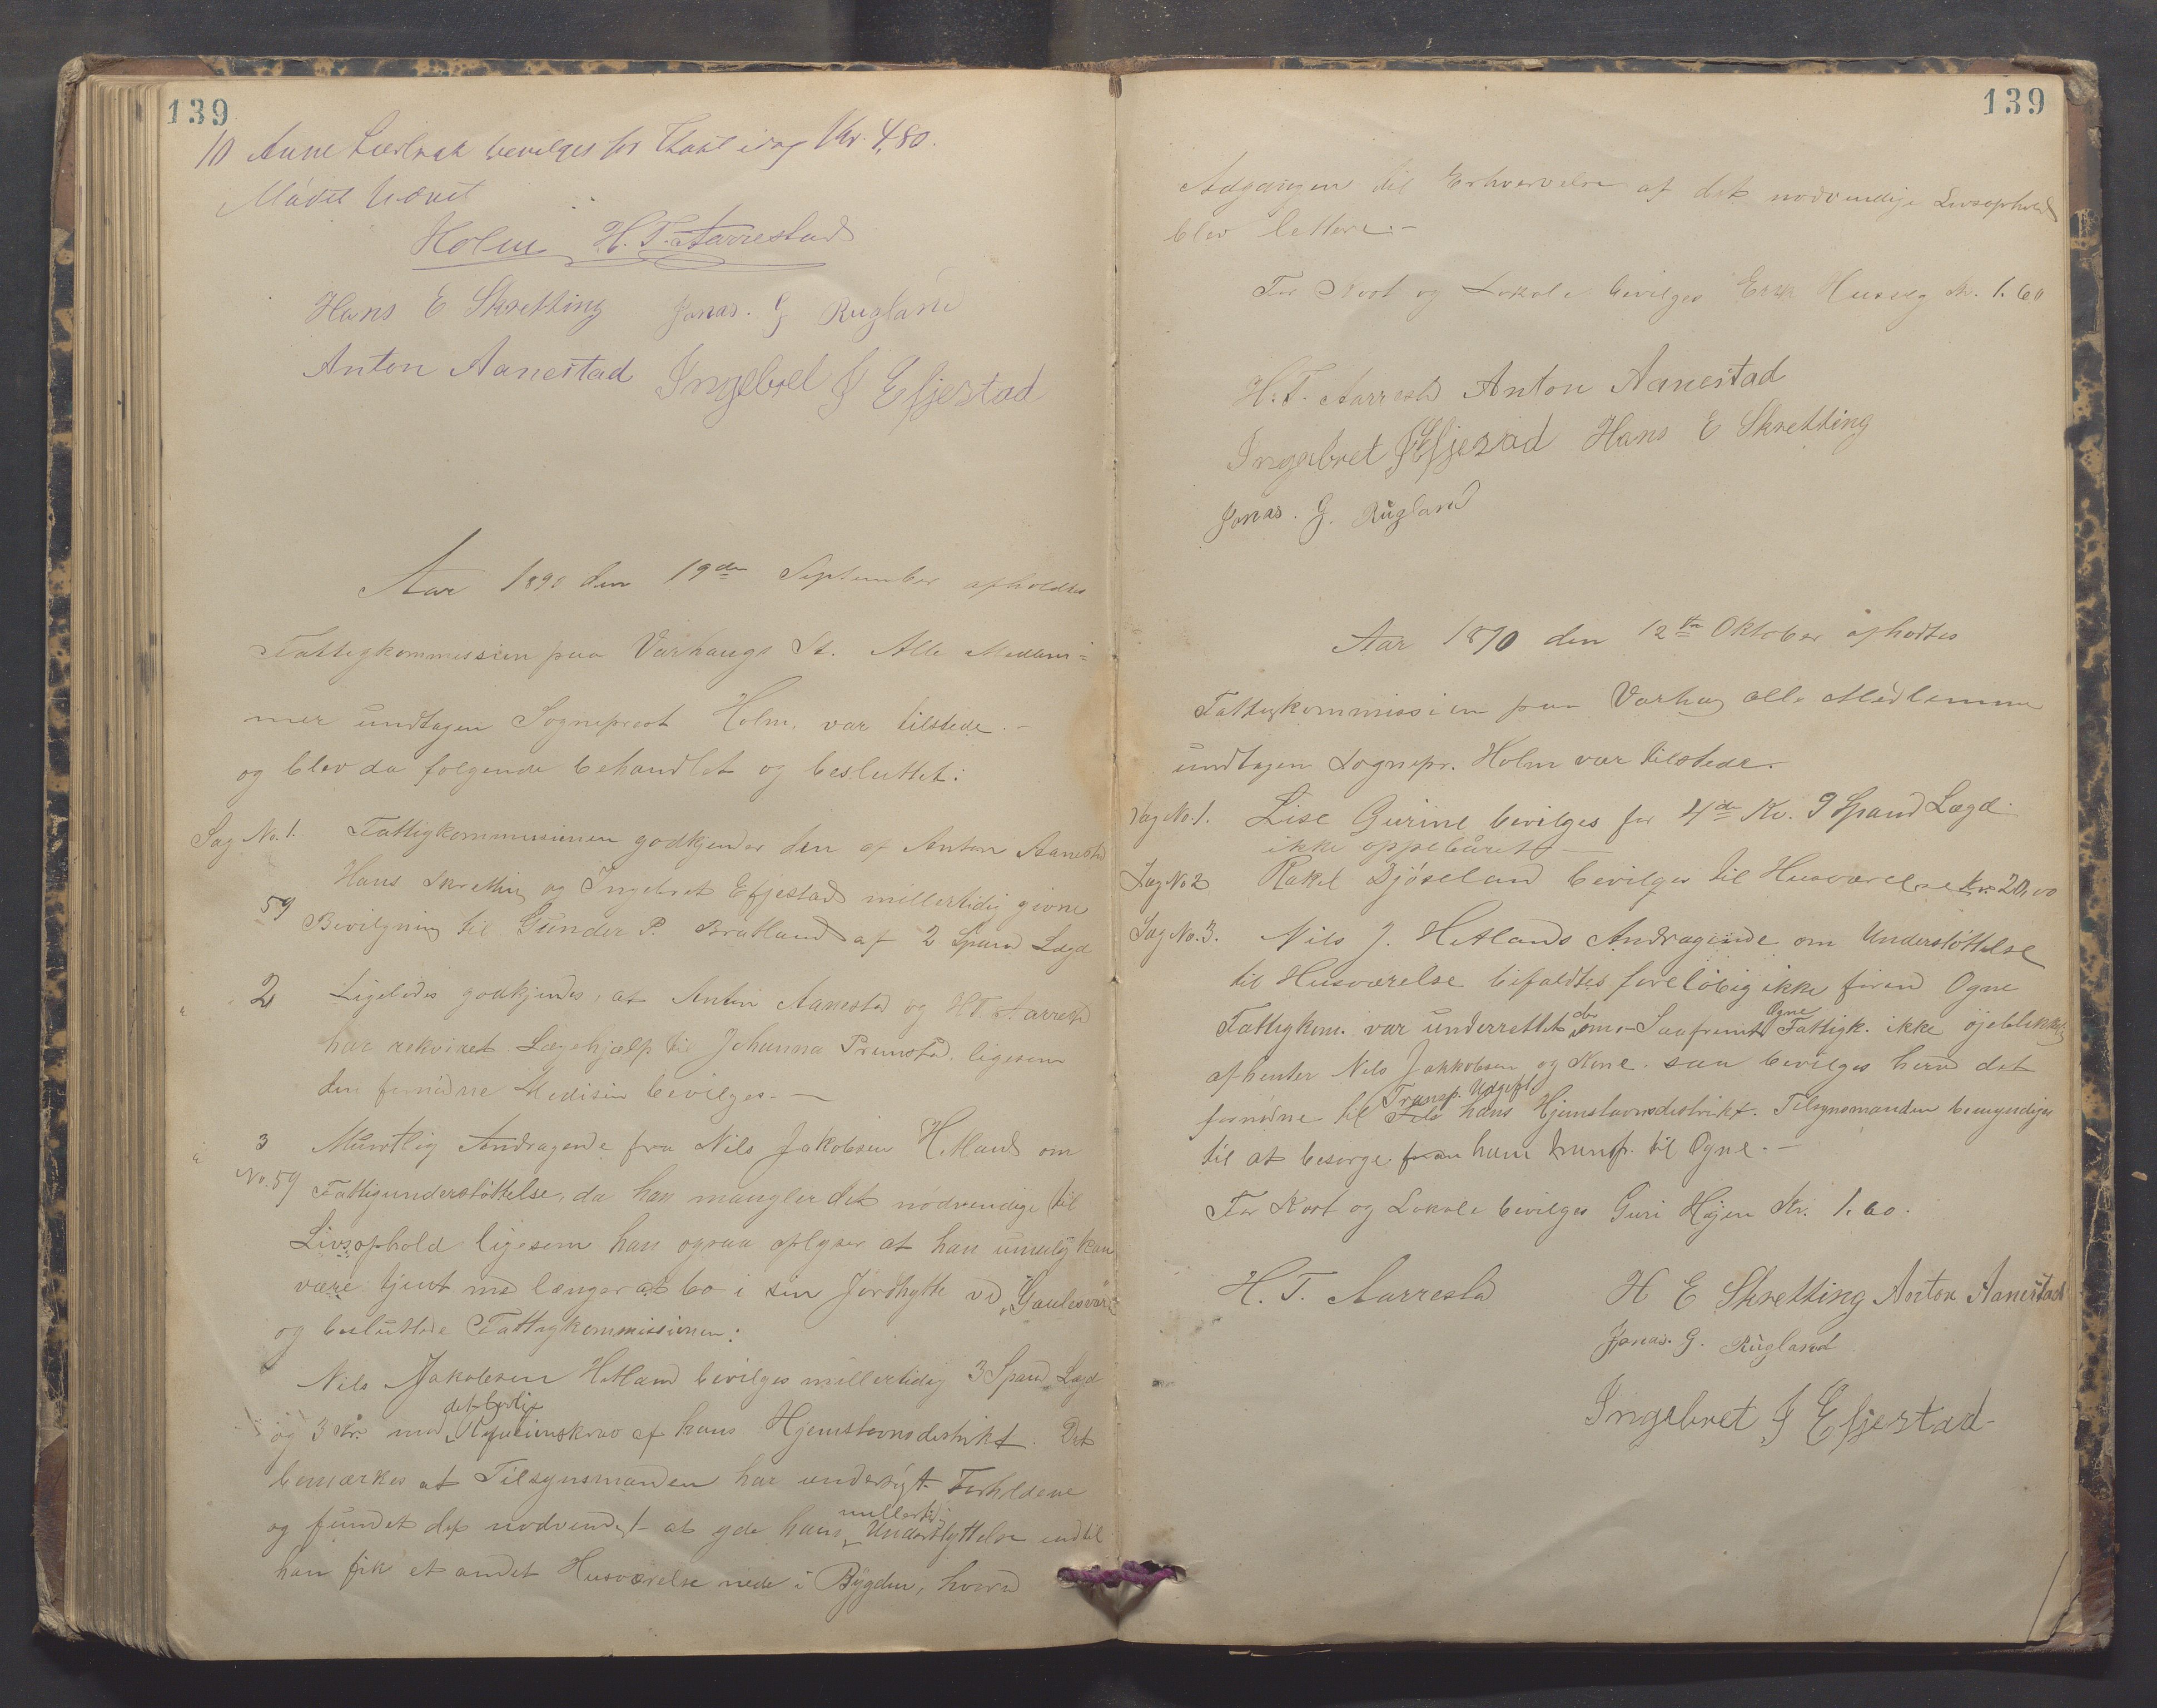 139
10 Anne bevilges for Kr. 4,80.
Mödet hævet
Holm H. T. Aarrestad
Hans E Skretting Jonas. G Rugland
Anton Aanestad Ingebret J Efjestad
Aar 1890 den 19de September afholdtes
Fattigkommissien paa Varhaugs St. Alle Medlem=
mer undtagen Sogneprest Holm. var tilstede.-
og blev da følgende behandlet og besluttet:
Sag No. 1. Fattigkommissionen godkjender den af Anton Aanestad
Hans Skretting og Ingebret Efjestad midlertidig givne
59 Bevilgning til Gunder P. Bratland af 2 Spand Lægd
2 Ligeledes godkjendes, at Anton Aanestad og H.T. Aarrestd
har rekviret Lægehjælp til Johanna ligesom
den fornödne Medisin bevilges.-
3 Mundtlig Andragende fra Nils Jakobsen Hetland om
No. 59 Fattigunderstöttelse, da han mangler det nödvendige til
Livsophold ligesom han ogsaa oplyser at han umulig kan
være tjent med længer at bo i sin Jordhytte ved
og besluttede Fattigkommissionen:
Nils Jakobsen Hetland bevilges midlertidig 3 Spand Lægd
og 3 Kr. med Refusionskrav af hans Hjemstavnsdistrikt. Det
bemærkes at Tilsynsmanden har undersögt Forholdene
og fundet det nödvendigt at yde ham midlertidig Understyttelse indtil
han fik et andet Husværelse nede i Bygden, hvorved
139
Adgangen til Erhvervelse af det nödvendige Livsophold
blev lettere.-
For Kost og Lokale bevilges Kr. 1.60
H. T. Aarrestd Anton Aanestad
Ingebret J Efjesad Hans E Skretting
Jonas. G. Rugland
Aar 1890 den 12te Oktober afholdtes
Fattigkommissien paa Varhaug alle Medlemme
undtagen Sognepr. Holm var tilstede.
Sag No. 1. Lise Gurine bevilges for 4de Kv. 9 Spand Lægd
ikke oppebåret -
Sag No 2 Rakel Djöseland bevilges til Husværelse Kr. 20,00
Sag No. 3. Nils J. Hetlands Andragende om Understöttelse
til Husværelse foreløbig ikke förend Ogne
Fattigkom. var underrettet derom.- Saafremt Ogne Fattigk. ikke öjeblikkelig
afhenter Nils Jakkobsen og Kone. saa bevilges herved det
fornödne til Transp. Udgift hans Hjemstavnsdistrikt. Tilsynsmanden bemyndiges
til at besorge ham transp. til Ogne.-
For Kost og Lokale bevilges Guri Höjen Kr. 1.60.
H. T. Aarrestad H E Skretting Anton Aanestad
Jonas. G. Rugland
Ingebret J Efjestad